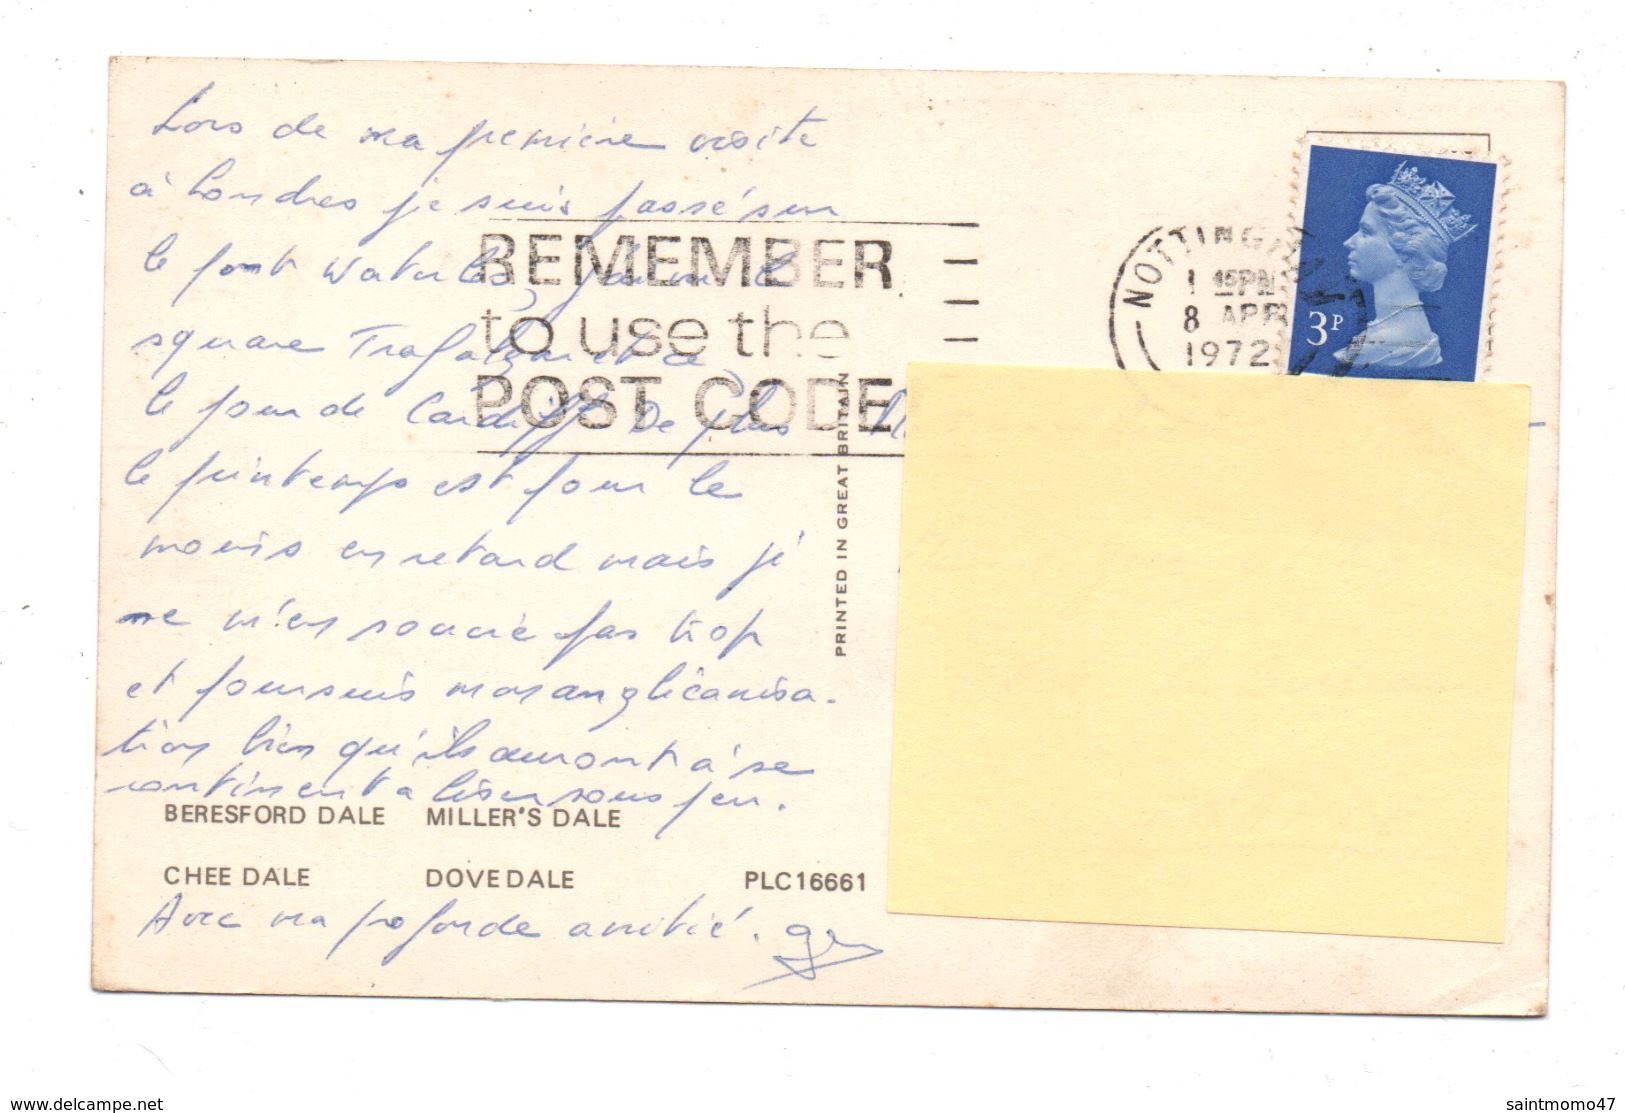 Lors de ma première visite
à Londres je suis passé sur
le pont Waterloo, par le
square Trafalgar et ce,
le jour de Cardiff. De plus
le printemps est pour le
moins en retard mais je
ne m'en soucie pas trop
et poursuis mon anglicanisa-
tion bien qu'ils auront à se
continent a bien sous peu.
BERESFORD DALE MILLER'S DALE
CHEE DALE DOVEDALE PLC16661
Avec ma profonde amitié.
REMEMBER
to use the
POST CODE
PRINTED IN GREAT BRITAIN
NOTTINGHAM
1 15PM
8 APR
1972
3P
www.delcampe.net
saintmomo47